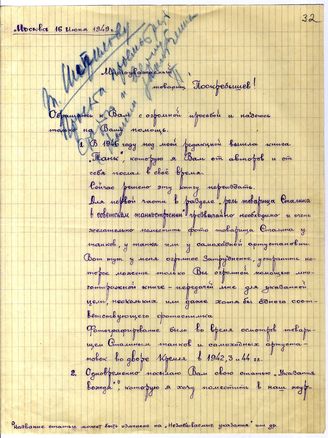 32
Москва 16 июня 1949 г.
Многоуважаемый
товарищ Поскребышев!
Обращаюсь к Вам с огромной просьбой и надеюсь
только на Вашу помощь.
1. В 1946 году под моей редакцией вышла книга
"Танк", которую я Вам от авторов и от
себя послал в своё время.
Сейчас решено эту книгу переиздать.
Для первой части в разделе "роль товарища Сталина
в советском танкостроении" чрезвычайно необходимо и очень
желательно поместить фото товарища Сталина у
танков, у танка или у самоходной артустановки.
Вот тут у меня огромное затруднение, устранить ко-
торое можете только Вы огромной помощью мно-
госторонней книге - передачей мне для указанной
цели, нескольких или даже хотя бы одного соот-
ветствующего фотоснимка.
Фотографирование было во время осмотров товари-
щем Сталиным танков и самоходных артуста-
новок во дворе Кремля в 1942, 3 и 44 гг.
2. Одновременно посылаю Вам свою статью "Указания
вождя"*, которую я хочу поместить в наш журн-
*Название статьи может быть изменено на "Незабываемые указания" или др.